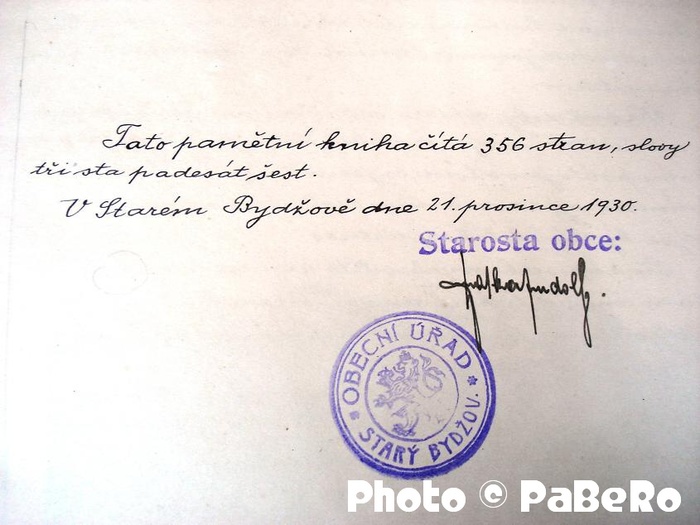 Tato pamětní kniha čítá 356 stran, slovy
tři sta padesát šest.
V Starém Bydžově dne 21. prosince 1930.
Starosta obce:
OBECNÍ ÚŘAD
* STARÝ BYDŽOV. *
Photo © PaBeRo